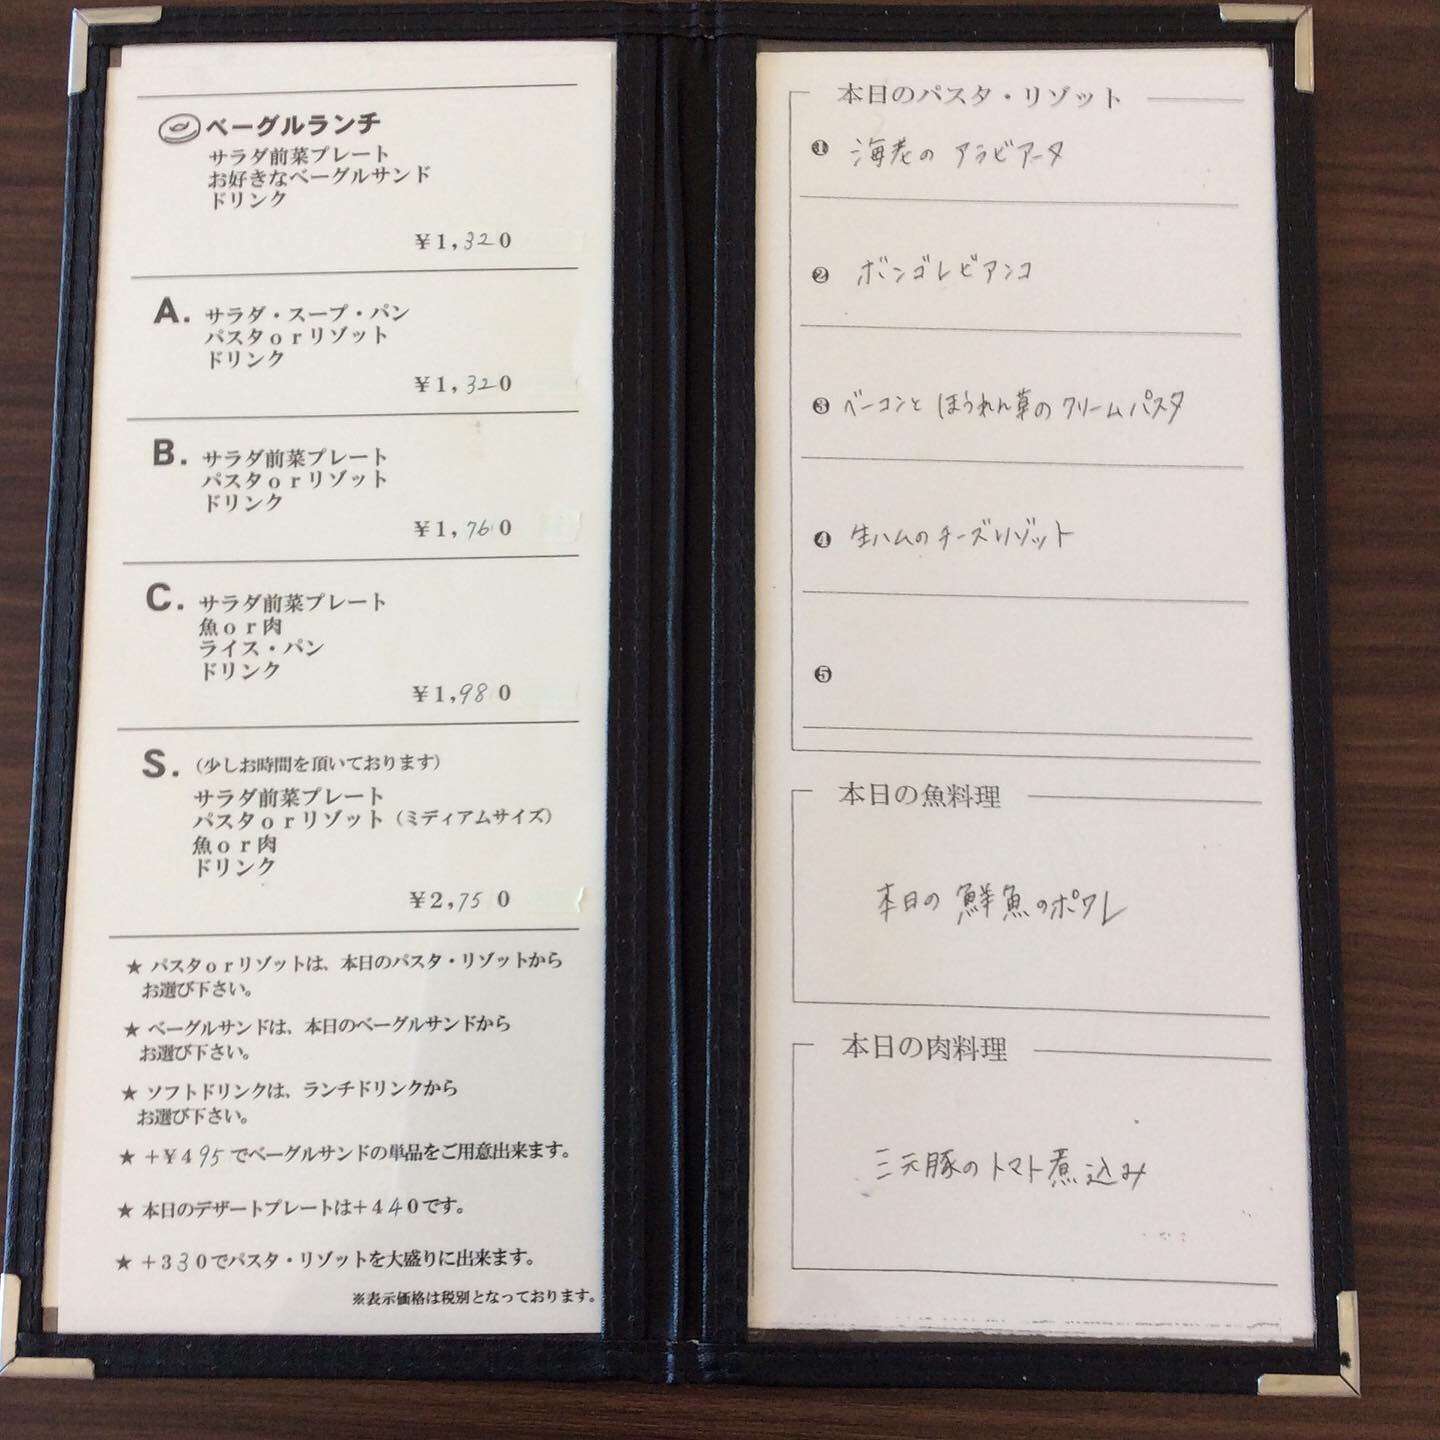 ベーグルランチ
サラダ前菜プレート
お好きなベーグルサンド
ドリンク
¥1,320
A. サラダ・スープ・パン
パスタorリゾット
ドリンク
¥1,320
B. サラダ前菜プレート
パスタorリゾット
ドリンク
¥1,760
C. サラダ前菜プレート
魚or肉
ライス・パン
ドリンク
¥1,980
S. (少しお時間を頂いております)
サラダ前菜プレート
パスタorリゾット(ミディアムサイズ)
魚or肉
ドリンク
¥2,750
★ パスタorリゾットは、本日のパスタ・リゾットから
お選び下さい。
★ ベーグルサンドは、本日のベーグルサンドから
お選び下さい。
★ ソフトドリンクは、ランチドリンクから
お選び下さい。
★ +¥495でベーグルサンドの単品をご用意出来ます。
★ 本日のデザートプレートは+440です。
★ +330でパスタ・リゾットを大盛りに出来ます。
※表示価格は税別となっております。
本日のパスタ・リゾット
❶ 海老のアラビアータ
❷ ボンゴレビアンコ
❸ ベーコンとほうれん草のクリームパスタ
❹ 生ハムのチーズリゾット
❺
本日の魚料理
本日の鮮魚のポワレ
本日の肉料理
三元豚のトマト煮込み